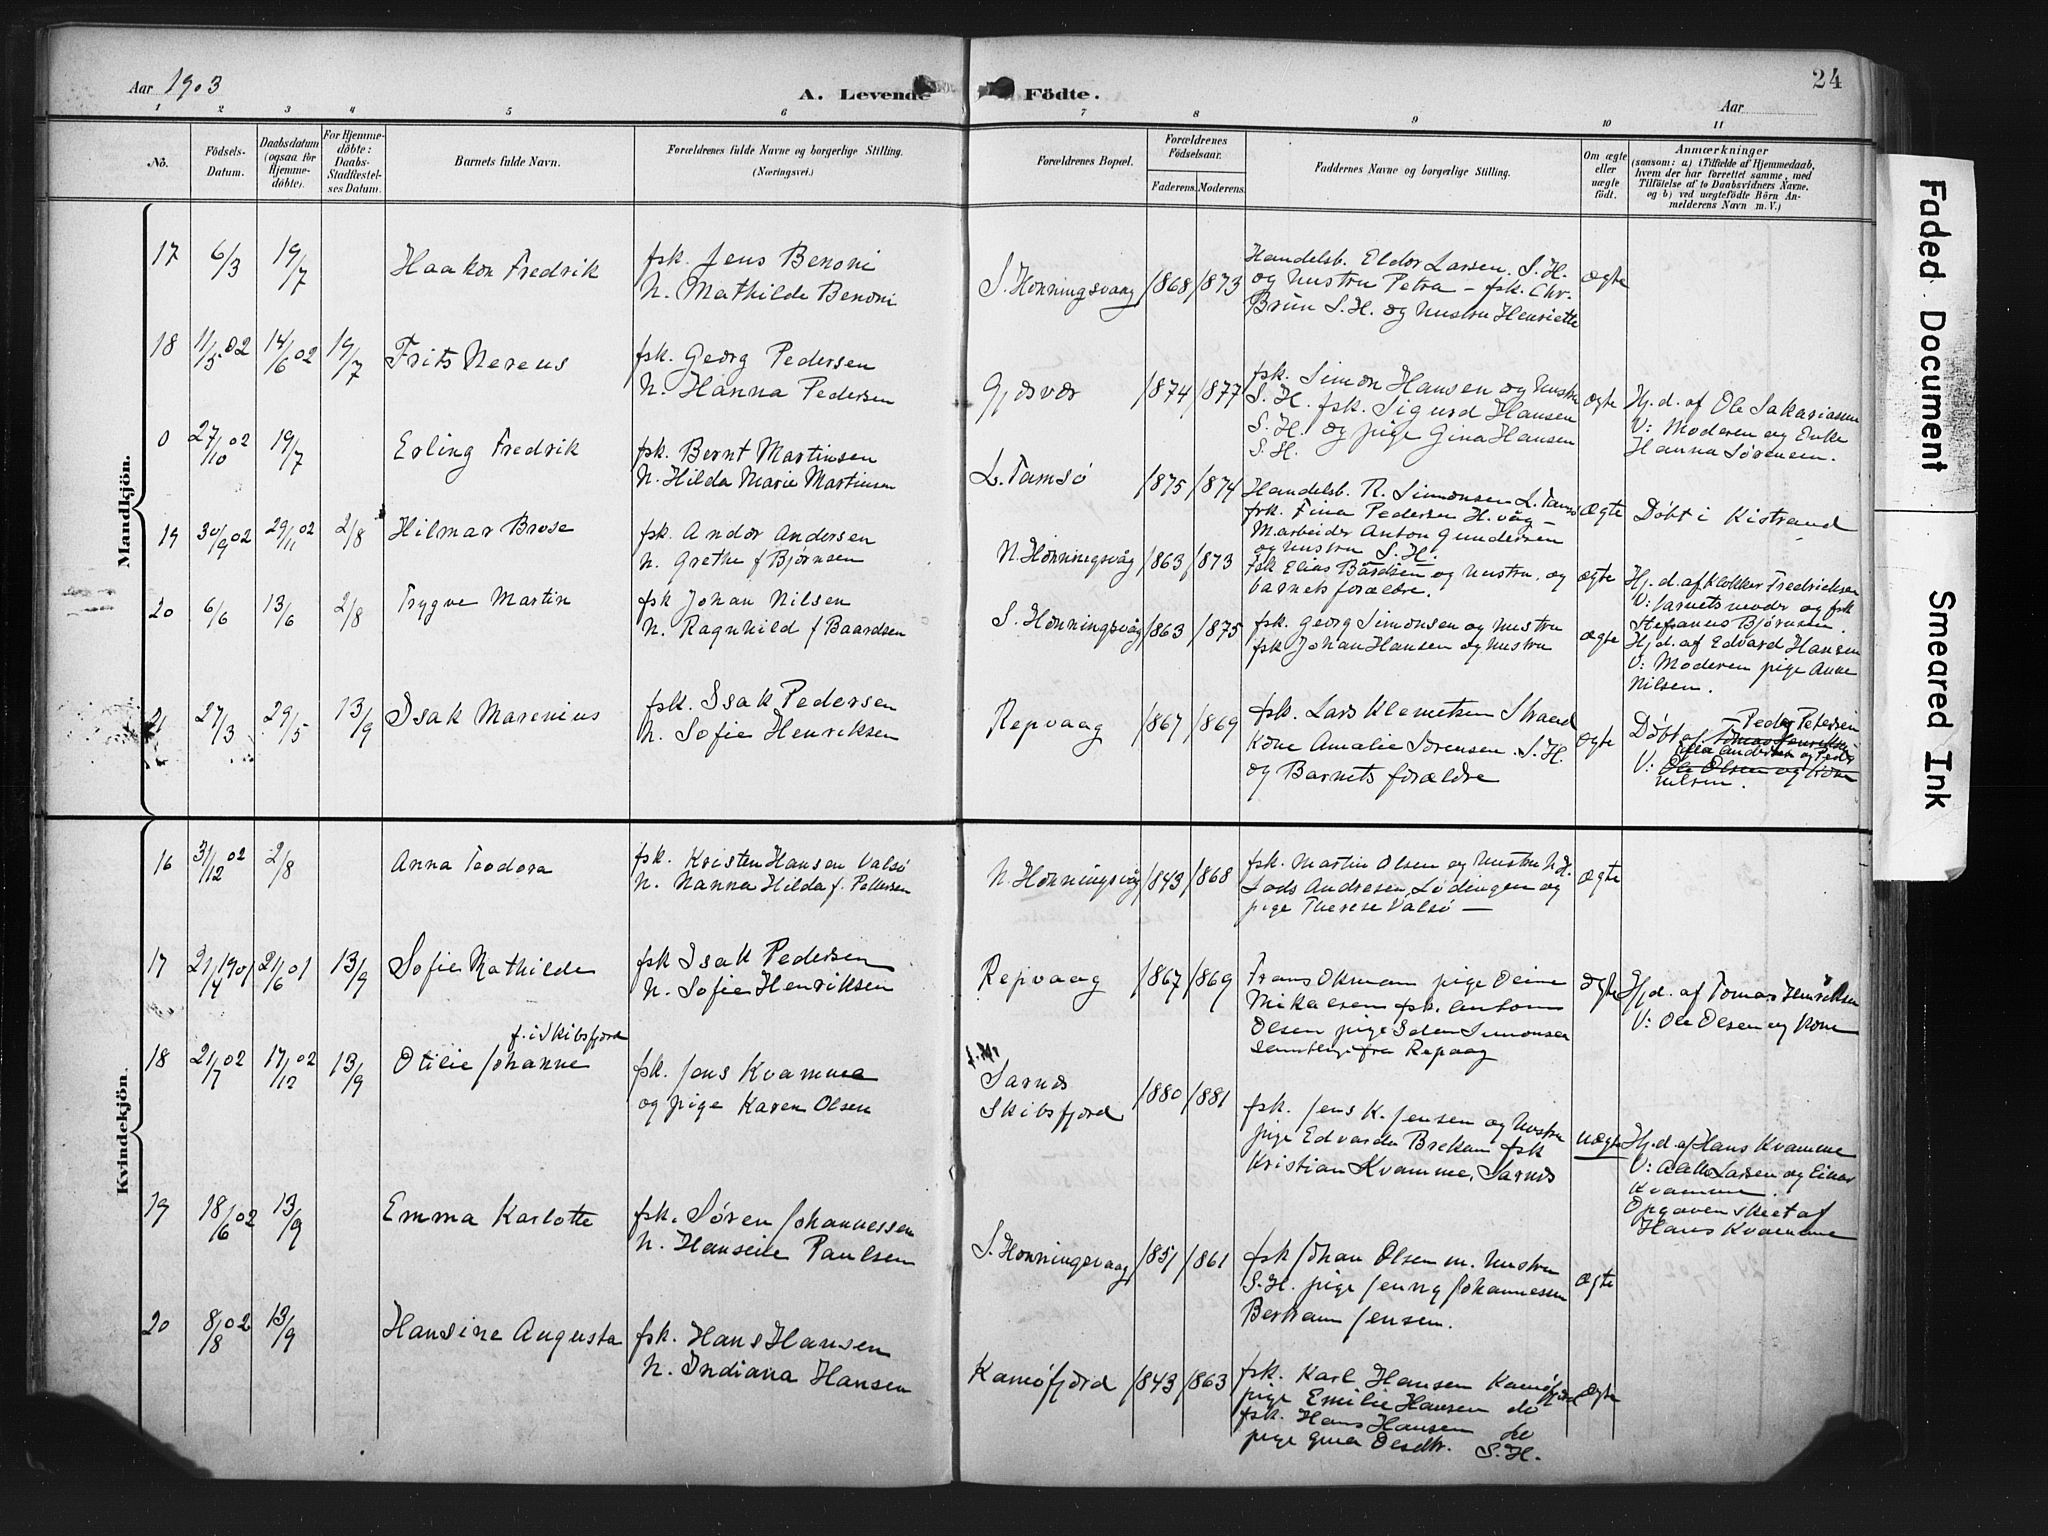 Aar 1903
A. Levende Födte.
24
Aar
1 2 3 4 5 6 7 8 9 10 11
No.
Födsels-Datum.
Daabsdatum (ogsaa for Hjemme-döbte).
For Hjemme-döbte: Daabs-Stadfæstel-ses Datum.
Barnets fulde Navn.
Forældrenes fulde Navne og borgerlige Stilling.
(Næringsvei.)
Forældrenes Bopæl.
Forældrenes Födselsaar.
Faderens. Moderens.
Faddernes Navne og borgerlige Stilling.
Om ægte eller uægte födt.
Anmærkninger
(saasom: a) i Tilfælde af Hjemmedaab,
hvem der har forrettet samme, med
Tilföielse af to Daabsvidners Navne.
og b) ved uægtefödte Börn An-
melderens Navn m. V.)
Mandkjön.
17 6/3 19/7 Haakon Fredrik
fsk. Jens Benoni
H. Mathilde Benoni
S. Honningsvaag 1868 1873
Handelsb. Eldor Larsen. S. H.
og hustru Petra – fsk. Chr.
Brun S. H. og hustru Henriette
ægte
18 11/5 02 14/6 02 19/7 Frits Nereus
fsk. Georg Pedersen
H. Hanna Pedersen
Gjesvær 1874 1877
fsk. Simon Hansen og hustru
S. H. fsk. Sigurd Hansen
S. H. og pige Gina Hansen
S. H.
ægte
Hj. d. af Ole Sakariassen
V: Moderen og Enke
Hanna Sørensen.
0 27/10 02 19/7 Erling Fredrik
fsk. Bernt Martinsen
H. Hilda Marie Martinsen
L. Tamsö 1875 1874
Handelsb. R. Simonsen L. Tamsö
frk. Fina Pedersen H.våg –
Marbeider Anton Gundersen
og hustru S. H.
ægte
Døbt i Kistrand
19 30/9 02 29/11 02 2/8 Hilmar Brose
fsk. Andor Andersen
H. Grethe f Bjørnsen
N. Honningsvåg 1863 1873
fsk Elias Bårdsen og hustru, og
barnets forældre.
ægte
Hj. d. af klokker Fredriksen
V: barnets moder og fsk
Stefanus Bjørnsen.
20 6/6 13/6 2/8 Trygve Martin
fsk Johan Nilsen
H. Ragnhild f Baardsen
S. Honningsvåg 1863 1875
fsk. Georg Simonsen og hustru
fsk Johan Hansen og hustru
ægte
Hj. d. af Edvard Hansen
V: Moderen pige Anne
Nilsen.
21 27/3 29/5 13/9 Isak Marenius
fsk. Isak Pedersen
H. Sofie Henriksen
Repvaag 1867 1869
fsk. Lars Klemetsen Strand
Kone Amalie Sørensen. S. H.
og Barnets forældre
ægte
Peder Petersen
Døbt af Tomas Henriksen
Andersen og Peder
V: Ole Olsen og kone
Nilsen.
Kvindekjön.
16 31/12 02 2/8 Anna Teodora
fsk. Kristen Hansen Valsö
H. Nanna Hilda f. Pettersen
N. Honningsvåg 1843 1868
fsk. Martin Olsen og hustru N. H.
Lods Andresen, Lödingen og
pige Therese Valsö –
ægte
17 21/4 1901 21/6 01 13/9 Sofie Mathilde
fsk Isak Pedersen
H. Sofie Henriksen
Repvaag 1867 1869
Frans Okman pige Oline
Mikalsen fsk. Antom
Olsen pige Iden Simonsen
samtlige fra Repvaag
ægte
Hj. d. af Tomas Henriksen
V: Ole Olsen og kone
f. i Skibsfjord
18 21/7 02 17/12 02 13/9 Otilie Johanne
fsk. Jens Kvamme
og pige Karen Olsen
Sarnes
Skibsfjord 1880 1881
fsk. Jens K. Jensen og hustru
pige Edvarda Brekan fsk
Kristian Kvamme, Sarnes
uægte
Hj. d. af Hans Kvamme
V: Larsen og Einar
Kvamme.
Opgaven skeet af
Hans Kvamme
19 18/6 02 13/9 Emma Karlotte
fsk. Søren Johannessen
H. Hansine Paulsen
S. Honningsvaag 1851 1861
fsk Johan Olsen m. hustru
S. H. pige Jenny Johannessen
Bertram Jensen.
ægte
20 8/8 02 13/9 Hansine Augusta
fsk. Hans Hansen
H. Indiana Hansen
Kamøfjord 1843 1863
fsk. Karl Hansen Kamøfjord
pige Emilie Hansen do
fsk. Hans Hansen do
pige Gina Olsdtr. S. H.
ægte
Faded Document
Smeared Ink